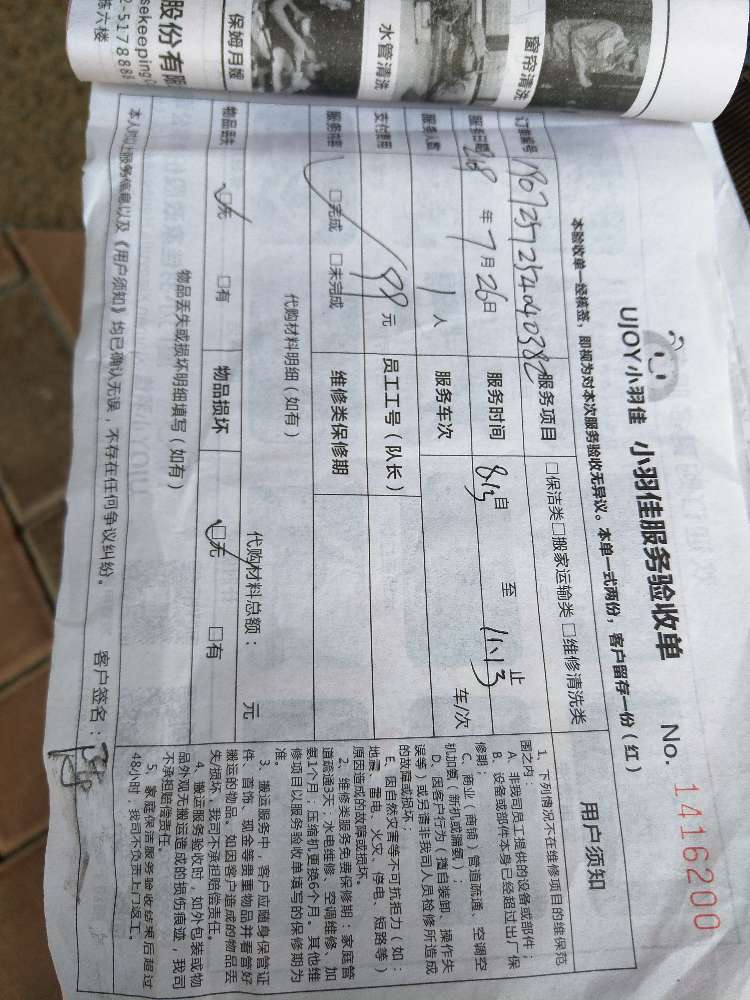 股份有限
sekeeping
2-5178888
栋六楼
保姆月嫂
水管清洗
窗帘清洗
UJOY小羽佳 小羽佳服务验收单 No. 1416200
本验收单一经核签，即视为对本次服务验收无异议。本单一式两份，客户留存一份（红）
订单编号 服务项目 □保洁类□搬家运输类□维修清洗类
服务日期 年7月26日 服务时间 8:13自 至 11:13止
服务人数 1人 服务车次 车/次
支付费用 199元 员工工号（队长）
服务结果 □完成 □未完成 维修类保修期
代购材料明细（如有） 代购材料总额： 元
物品丢失 □无 □有 物品损坏 □无 □有
物品丢失或损坏明细填写（如有）
本人对以上服务信息以及《用户须知》均已确认无误，不存在任何争议纠纷。 客户签名：
用户须知
1、下列情况不在维修项目的维保范
围之内
A、非我司员工提供的设备或部件；
B、设备或部件本身已经超过出厂保
修期；
C、商业（商铺）管道疏通、空调空
机加氨（新机或漏氨）；
D、因客户行为（擅自装卸、操作失
误等）或另请非我司人员检修所造成
的故障或损坏；
E、因自然灾害等不可抗拒力（如：
地震、雷电、火灾、停电、短路等）
原因造成的故障或损坏。
2、维修类服务免费保修期：家庭管
道疏通3天；水电维修、空调维修、加
氨1个月；压缩机更换6个月。其他维
修项目以服务验收单填写的保修期为
准。
3、搬运服务中，客户应随身保管证
件、首饰、现金等贵重物品并看管好
搬运的物品。如因客户造成的物品丢
失/损坏，我司不承担赔偿责任。
4、搬运服务验收时，如外包装或物
品外观无搬运造成的损伤痕迹，我司
不承担赔偿责任。
5、家庭保洁服务验收结束后超过
48小时，我司不负责上门返工。